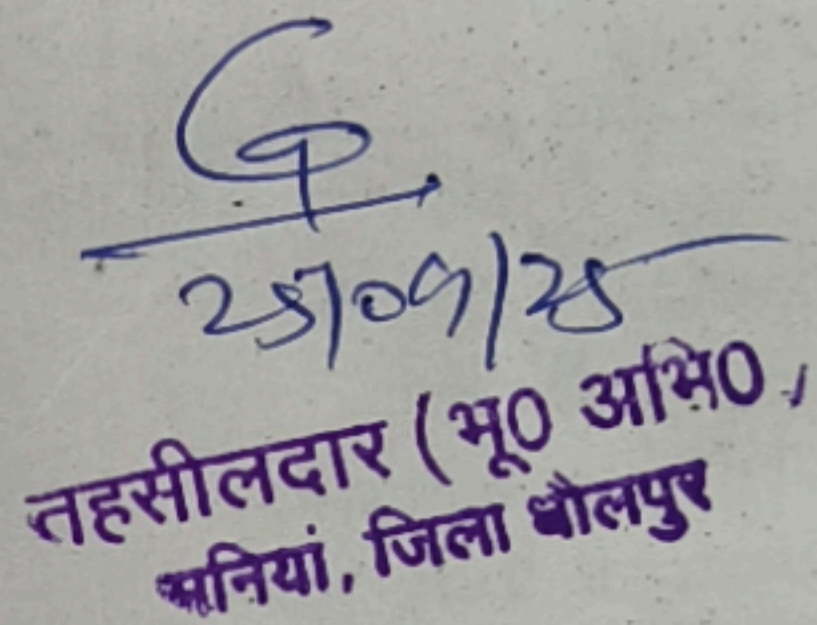 25/09/25
तहसीलदार (भू0 अभि0)
मनियां, जिला धौलपुर